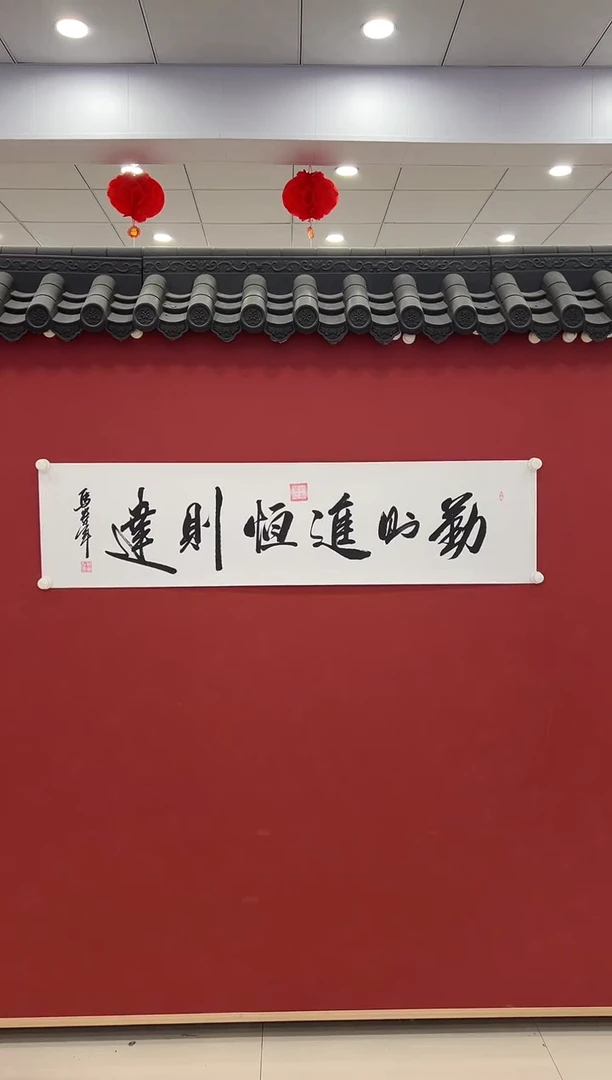 勤則進恒則達